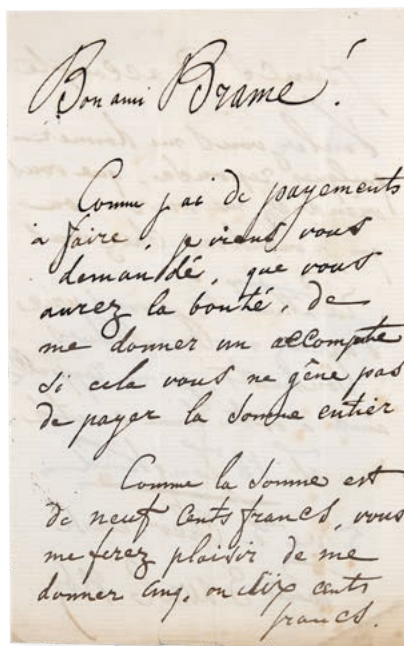 Bon ami Brame !
Comme j'ai de payements
à faire, je viens vous
demandé, que vous
aurez la bonté, de
me donner un accompte
si cela vous ne gêne pas
de payer la somme entier
Comme la somme est
de neuf cents francs, vous
me ferez plaisir de me
donner cinq, ou dix cents
francs.